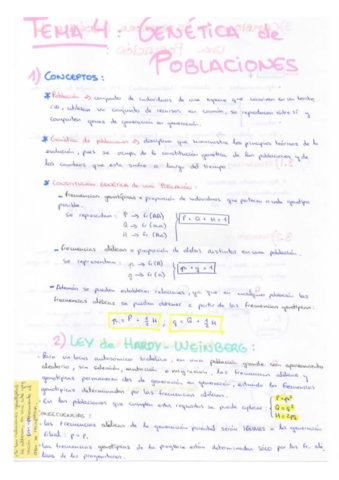 TEMA 4: GENÉTICA de
POBLACIONES
1) CONCEPTOS:
* Población => conjunto de individuos de una especie que conviven en un territo
rio, utilizan un conjunto de recursos en común, se reproducen entre sí y
comparten genes de generación en generación.
* Genética de poblaciones => disciplina que suministra los principios teóricos de la
evolución, pues se ocupa de la constitución genética de las poblaciones y de
los cambios que esta sufre a lo largo del tiempo.
* CONSTITUCIÓN GENÉTICA de una POBLACIÓN:
- frecuencias genotípicas => proporción de individuos que portan cada genotipo
posible.
Se representan: P → fr(AA)
Q → fr(aa)
H → fr(Aa)
P + Q + H = 1
- frecuencias alélicas => proporción de alelos distintos en una población.
Se representan: p → fr(A)
q → fr(a)
p + q = 1
- Además se pueden establecer relaciones, ya que en cualquier población las
frecuencias alélicas se pueden obtener a partir de las frecuencias genotípicas:
p = P + 1/2 H ; q = Q + 1/2 H
2) LEY de HARDY-WEINBERG:
- Para un locus autosómico bialélico, en una población grande con apareamiento
aleatorio, sin selección, mutación o migración, las frecuencias alélicas y
genotípicas permanecen de generación en generación, estando las frecuencias
genotípicas determinadas por las frecuencias alélicas.
- En las poblaciones que cumplen estos requisitos se puede aplicar:
P = p²
Q = q²
H = 2pq
CONSECUENCIAS:
- Las frecuencias alélicas de la generación parental serán IGUALES a la generación
filial: p = p₁
- Las frecuencias genotípicas de la progenie están determinadas SÓLO por las fr. alé
licas de los progenitores.